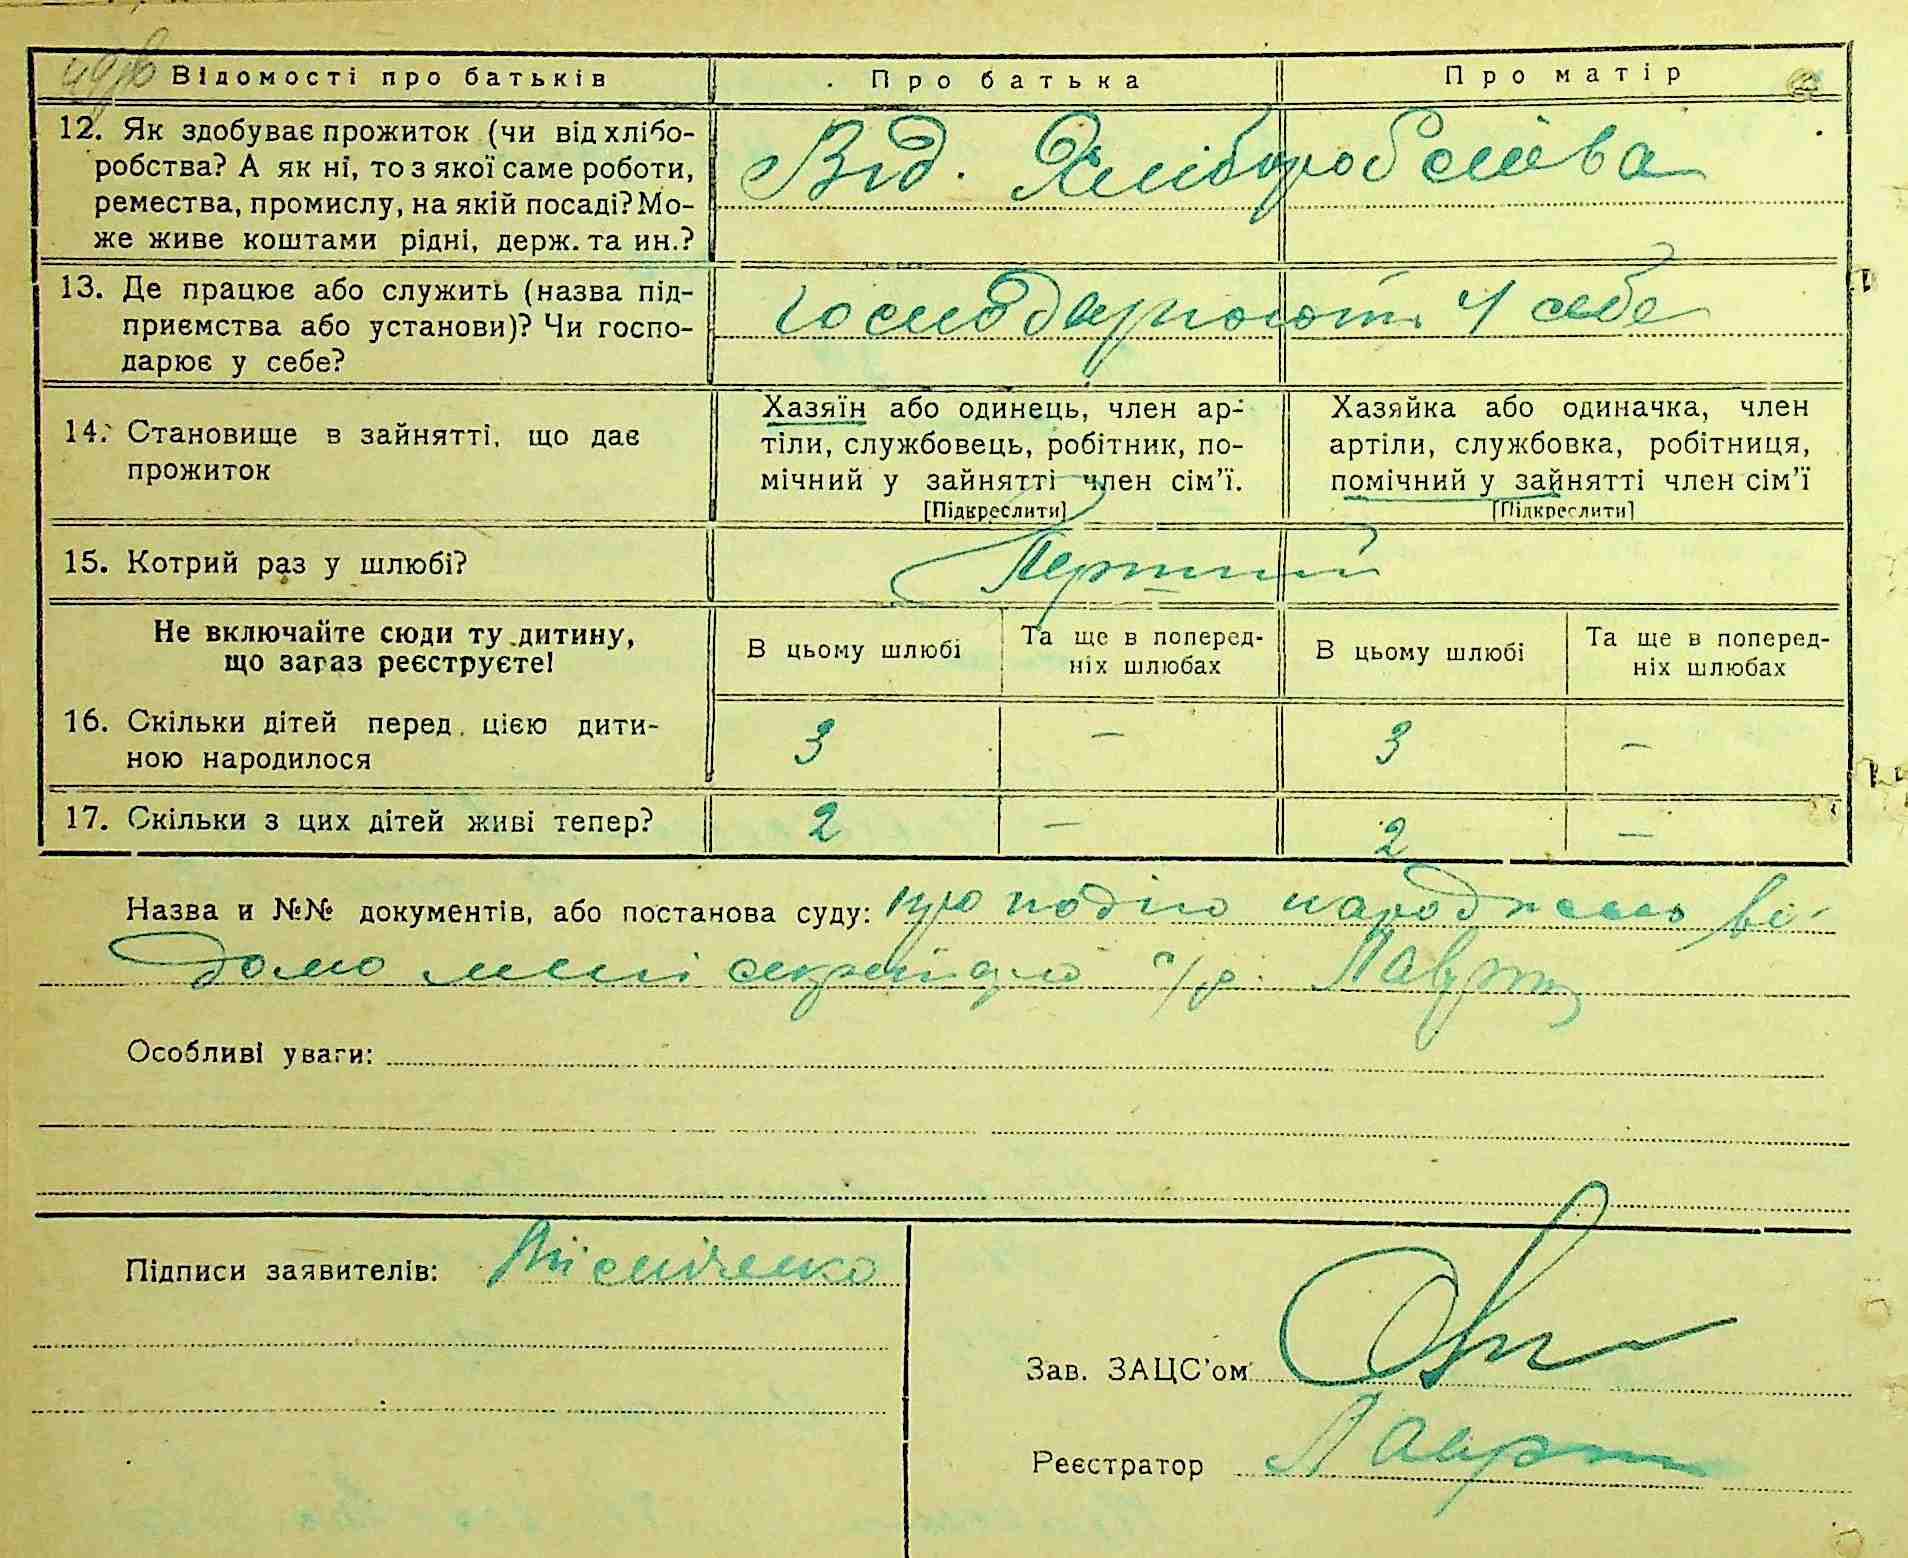 Відомості про батьків Про батька Про матір
12. Як здобуває прожиток (чи від хлібо-
робства? А як ні, то з якої саме роботи,
ремества, промислу, на якій посаді? Мо-
же живе коштами рідні, держ. та ин.?
Від. Хліборобства
13. Де працює або служить (назва під-
приємства або установи)? Чи госпо-
дарює у себе?
господарюють у себе
14. Становище в зайнятті, що дає
прожиток
Хазяїн або одинець, член ар-
тіли, службовець, робітник, по-
мічний у зайнятті член сім'ї.
[Підкреслити]
Хазяйка або одиначка, член
артіли, службовка, робітниця,
помічний у зайнятті член сім'ї
[Підкреслити]
15. Котрий раз у шлюбі?
Перший
Не включайте сюди ту дитину,
що зараз реєструєте!
В цьому шлюбі
Та ще в поперед-
ніх шлюбах
В цьому шлюбі
Та ще в поперед-
ніх шлюбах
16. Скільки дітей перед цією дити-
ною народилося
3 — 3 —
17. Скільки з цих дітей живі тепер? 2 — 2 —
Назва и №№ документів, або постанова суду: про подію народжень ві-
домо мені секретарю с/р.
Особливі уваги:
Підписи заявителів:
Зав. ЗАЦС'ом
Реєстратор